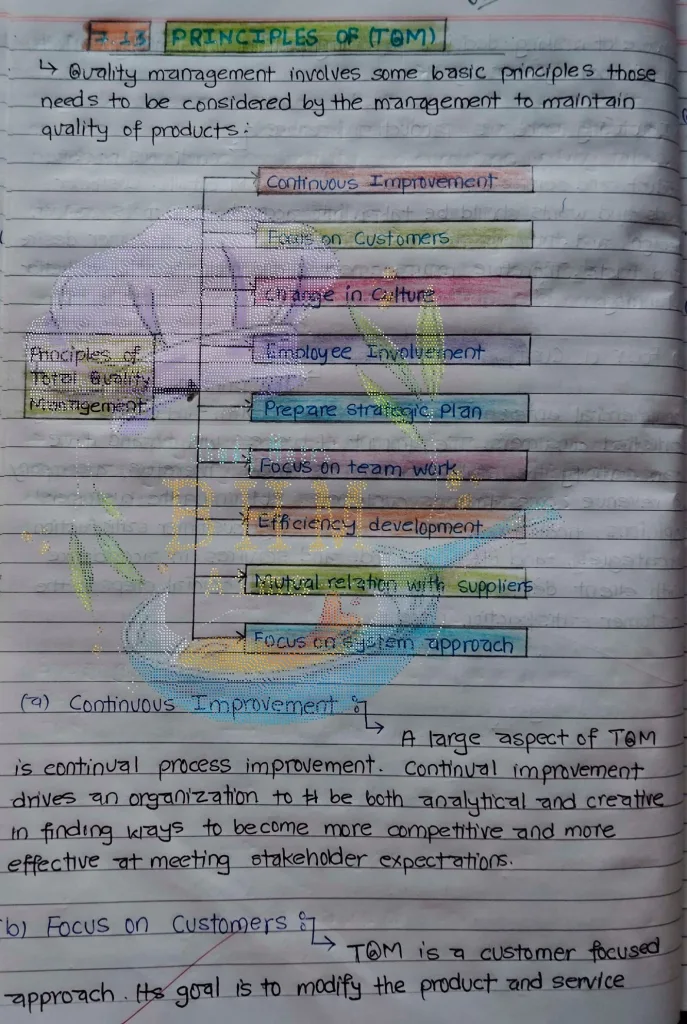 7.13 PRINCIPLES OF (TQM)
↳ Quality management involves some basic principles those
needs to be considered by the management to maintain
quality of products:
Continuous Improvement
Focus on Customers
Change in Culture
Employee Involvement
Principles of
Total Quality
Management
Prepare strategic Plan
Focus on team work
BHM
Efficiency development
Mutual relation with suppliers
Focus on system approach
(a) Continuous Improvement :
↳ A large aspect of TQM
is continual process improvement. Continual improvement
drives an organization to be both analytical and creative
in finding ways to become more competitive and more
effective at meeting stakeholder expectations.
b) Focus on Customers :
↳ TQM is a customer focused
approach. Its goal is to modify the product and service